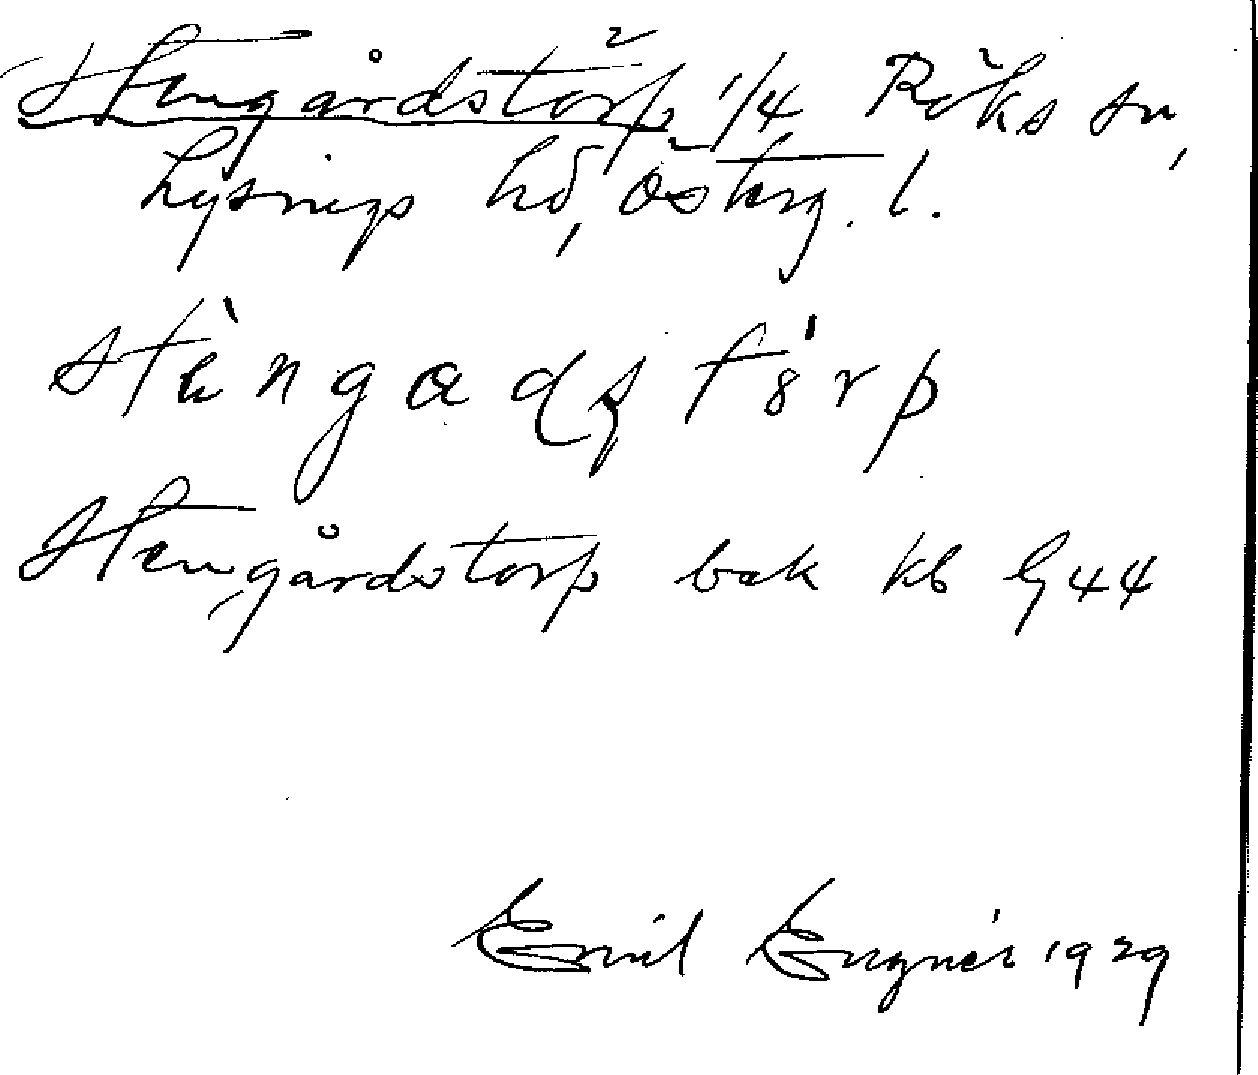 Stengårdstorp 1/4 Röks sn,
Lysings hd, Österg. l.
stèngadstórp
Stengårdstorp bak kb G44
Emil 1929